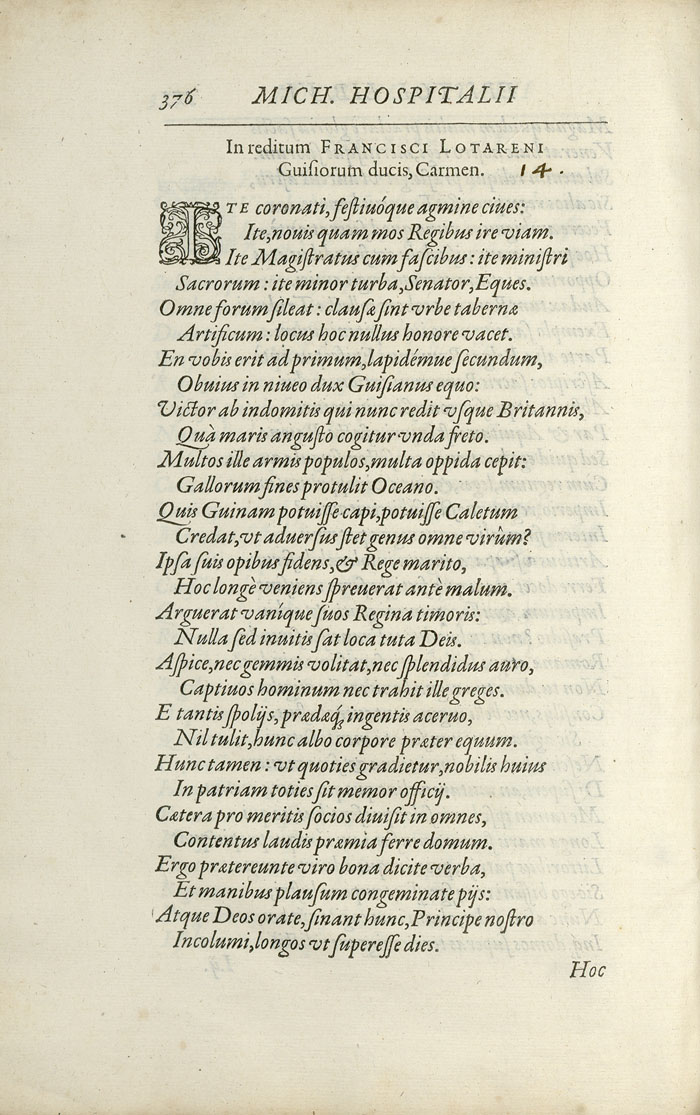 376 MICH. HOSPITALII
In reditum FRANCISCI LOTARENI
Guiſiorum ducis, Carmen. 14.
ITE coronati, feſtiuóque agmine ciues:
Ite, nouis quam mos Regibus ire viam.
Ite Magiſtratus cum faſcibus: ite miniſtri
Sacrorum: ite minor turba, Senator, Eques.
Omne forum ſileat: clauſæ ſint vrbe tabernæ
Artificum: locus hoc nullus honore vacet.
En vobis erit ad primum, lapidémue ſecundum,
Obuius in niueo dux Guiſianus equo:
Victor ab indomitis qui nunc redit vſque Britannis,
Quà maris anguſto cogitur vnda freto.
Multos ille armis populos, multa oppida cepit:
Gallorum fines protulit Oceano.
Quis Guinam potuiſſe capi, potuiſſe Caletum
Credat, vt aduerſius ſtet genus omne virûm?
Ipſa ſuis opibus fidens, & Rege marito,
Hoc longè veniens ſpreuerat antè malum.
Arguerat vaníque ſuos Regina timoris:
Nulla ſed inuitis ſat loca tuta Deis.
Aſpice, nec gemmis volitat, nec ſplendidus auro,
Captiuos hominum nec trahit ille greges.
E tantis ſpolijs, prædæq́; ingentis aceruo,
Nil tulit, hunc albo corpore præter equum.
Hunc tamen: vt quoties gradietur, nobilis huius
In patriam toties ſit memor officij.
Cætera pro meritis ſocios diuiſit in omnes,
Contentus laudis præmia ferre domum.
Ergo prætereunte viro bona dicite verba,
Et manibus plauſum congeminate pijs:
Atque Deos orate, ſinant hunc, Principe noſtro
Incolumi, longos vt ſupereſſe dies.
Hoc